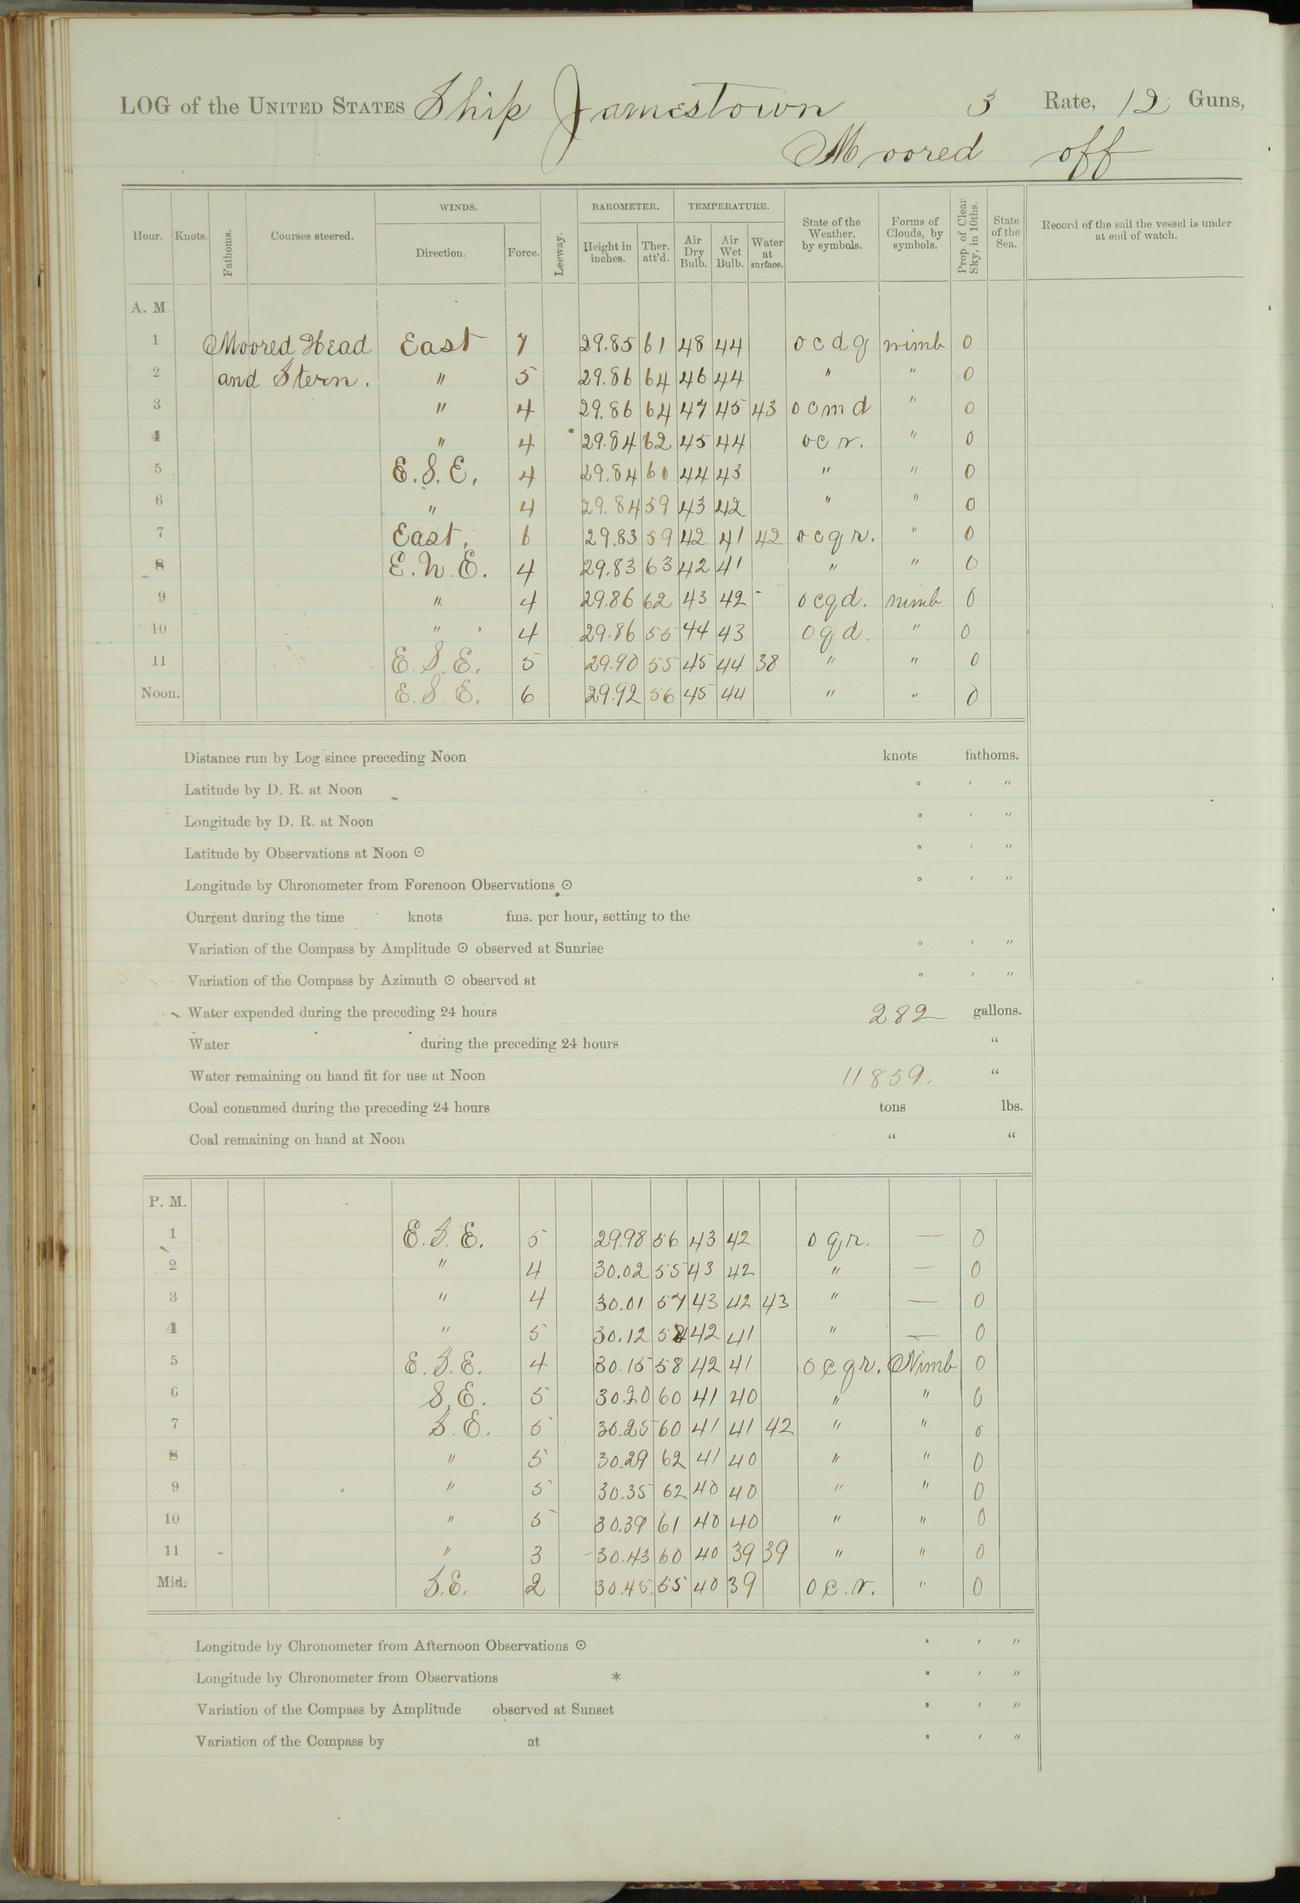 LOG of the UNITED STATES Ship Jamestown 3 Rate, 12 Guns,
Moored off
Hour. Knots. Fathoms. Courses steered. WINDS. Direction. Force. Leeway. BAROMETER. Height in inches. Ther. att'd. TEMPERATURE. Air Dry Bulb. Air Wet Bulb. Water at surface. State of the Weather, by symbols. Forms of Clouds, by symbols. Prop. of Clear Sky, in 10ths. State of the Sea. Record of the sail the vessel is under at end of watch.
A. M.
1 Moored Head East 7 29.85 61 48 44 o c d q nimb 0
2 and Stern. " 5 29.86 64 46 44 " " 0
3 " 4 29.86 64 47 45 43 o c m d " 0
4 " 4 29.84 62 45 44 o c r. " 0
5 E.S.E. 4 29.84 60 44 43 " " 0
6 " 4 29.84 59 43 42 " " 0
7 East. 6 29.83 59 42 41 42 o c q r. " 0
8 E.N.E. 4 29.83 63 42 41 " " 0
9 " 4 29.86 62 43 42 - o c q d. nimb 0
10 " 4 29.86 55 44 43 o q d. " 0
11 E.S.E. 5 29.90 55 45 44 38 " " 0
Noon. E.S.E. 6 29.92 56 45 44 " " 0
Distance run by Log since preceding Noon knots fathoms.
Latitude by D. R. at Noon ° ′ ″
Longitude by D. R. at Noon ° ′ ″
Latitude by Observations at Noon ⊙ ° ′ ″
Longitude by Chronometer from Forenoon Observations ⊙ ° ′ ″
Current during the time knots fms. per hour, setting to the
Variation of the Compass by Amplitude ⊙ observed at Sunrise ° ′ ″
Variation of the Compass by Azimuth ⊙ observed at ° ′ ″
Water expended during the preceding 24 hours 282 gallons.
Water during the preceding 24 hours “
Water remaining on hand fit for use at Noon 11859. “
Coal consumed during the preceding 24 hours tons lbs.
Coal remaining on hand at Noon “ “
P. M.
1 E.S.E. 5 29.98 56 43 42 o q r. — 0
2 " 4 30.02 55 43 42 " — 0
3 " 4 30.01 57 43 42 43 " — 0
4 " 5 30.12 42 41 " — 0
5 E.S.E. 4 30.15 58 42 41 o c q r. Nimb 0
6 S.E. 5 30.20 60 41 40 " " 0
7 S.E. 5 30.25 60 41 41 42 " " 0
8 " 5 30.29 62 41 40 " " 0
9 " 5 30.35 62 40 40 " " 0
10 " 5 30.39 61 40 40 " " 0
11 " 3 30.43 60 40 39 39 " " 0
Mid. S.E. 2 30.45 55 40 39 o c. r. " 0
Longitude by Chronometer from Afternoon Observations ⊙ ° ′ ″
Longitude by Chronometer from Observations * ° ′ ″
Variation of the Compass by Amplitude observed at Sunset ° ′ ″
Variation of the Compass by at ° ′ ″